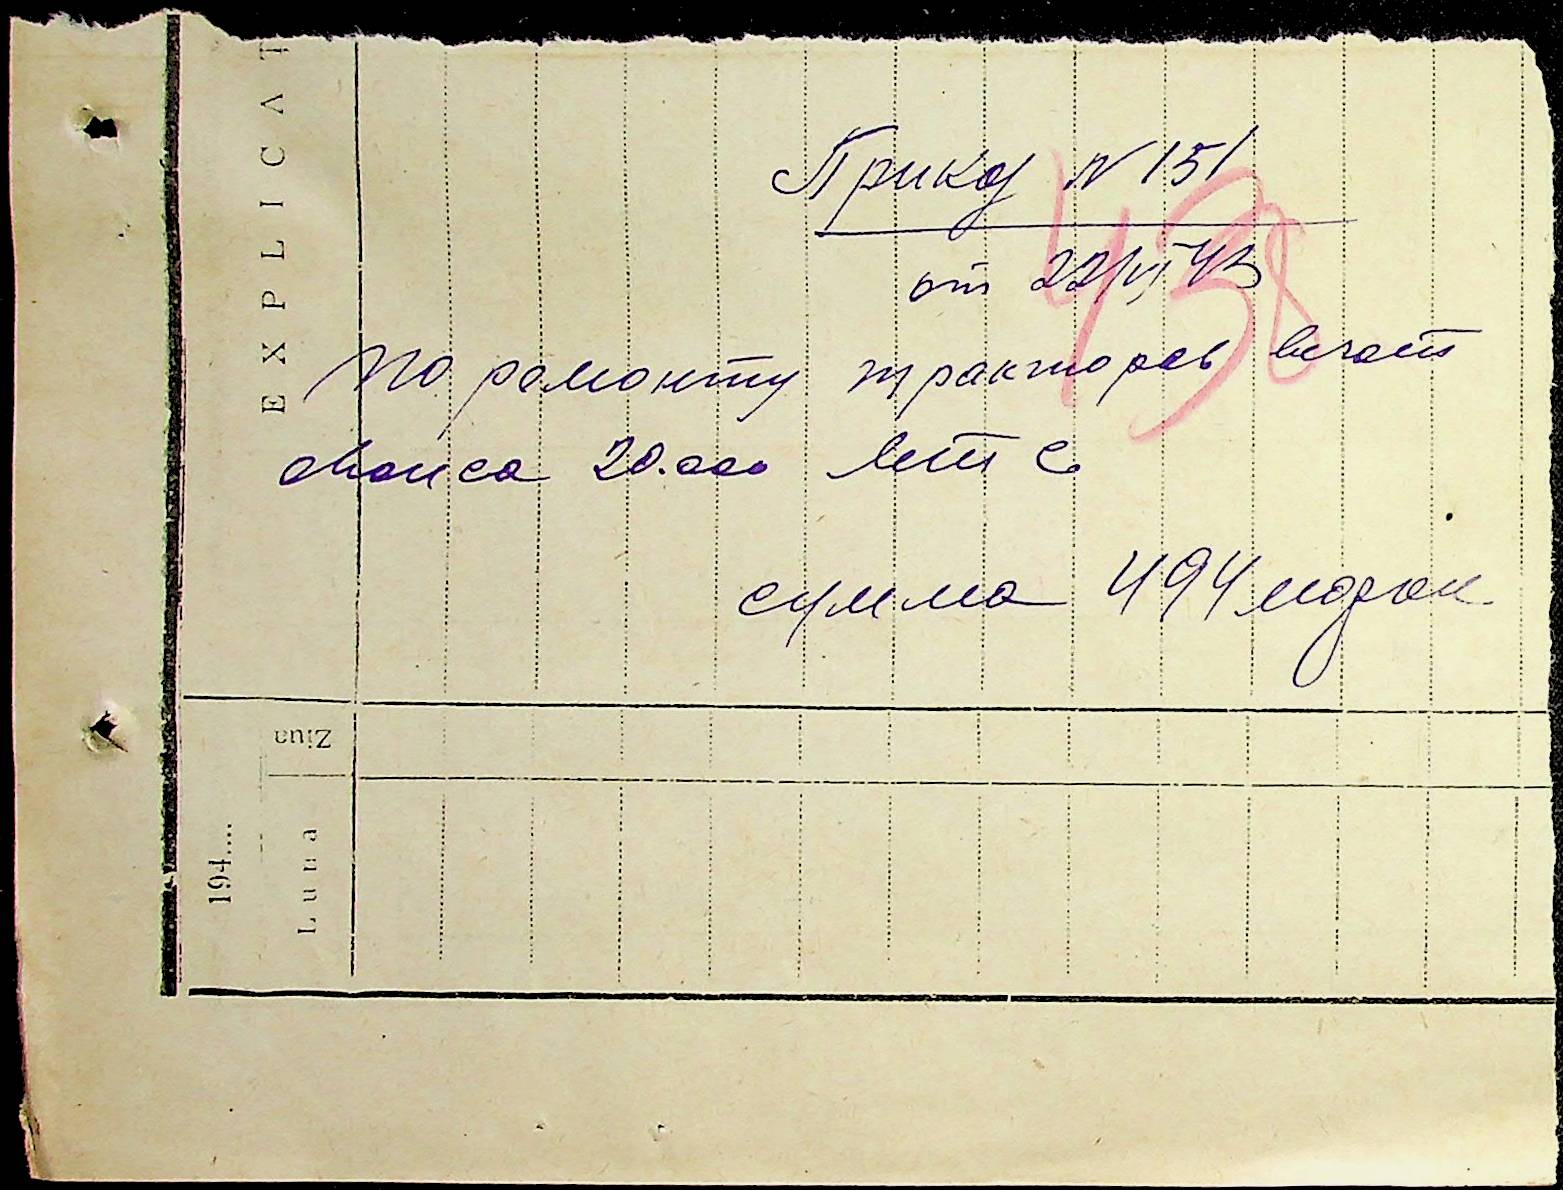 Приказ N 151
от 22/VI 43
438
По ремонту тракторов в счет
аванса 20.000 МТС
сумма 494 марки
EXPLICAT
Ziua
Luna
194....